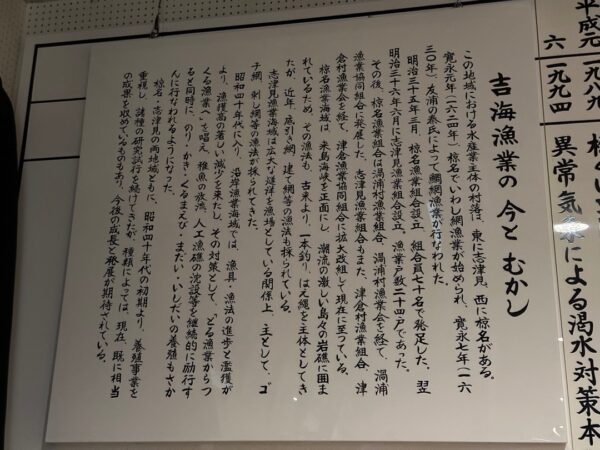 吉海漁業の 今と むかし
この地域における水産業主体の村落は、東に志津見、西に椋名がある。
寛永元年(一六二四年)、椋名でいわし網漁業が始められ、寛永七年(一六
三〇年)、友浦の泰氏によって鯛網漁業が行なわれた。
明治三十五年三月、椋名漁業組合設立、組合員七十名で発足した。翌
明治三十六年六月に志津見漁業組合設立、漁業戸数二十四戸であった。
その後、椋名漁業組合は渦浦村漁業組合、渦浦村漁業会を経て、渦浦
漁業協同組合に発展した。志津見漁業組合もまた、津倉村漁業組合、津
倉村漁業会を経て、津倉漁業協同組合に拡大改組して現在に至っている。
椋名漁業海域は、来島海峡を正面にし、潮流の激しい島々の岩礁に囲ま
れているため、その漁法も、古来より、一本釣り、はえ縄を主体としてき
たが、近年、底引き網、建て網等の漁法も採られている。
志津見漁業海域は広大な磋洋を漁場としている関係上、主として、ゴ
チ網、刺し網等の漁法が採られてきた。
昭和四十年代に入り、沿岸漁業海域では、漁具、漁法の進歩と濫獲が
より、漁獲高の著しい減少を来たし、その対策として、"とる漁業からつ
くる漁業へ"を唱え、稚魚の放流、人工漁礁の沈設等を継続的に励行す
ると同時に、のり・かき・くるまえび・まだい・いしだいの養殖もさか
んに行なわれるようになった。
椋名・志津見の両地域ともに、昭和四十年代の初期より、養殖事業を
重視し、諸種の研究試行を続けてきたが、種類によっては、現在、既に相当
の成果を収めているものもあり、今後の成長と発展が期待されている。
平成元 一九八九
六 一九九四 異常気象による渇水対策本